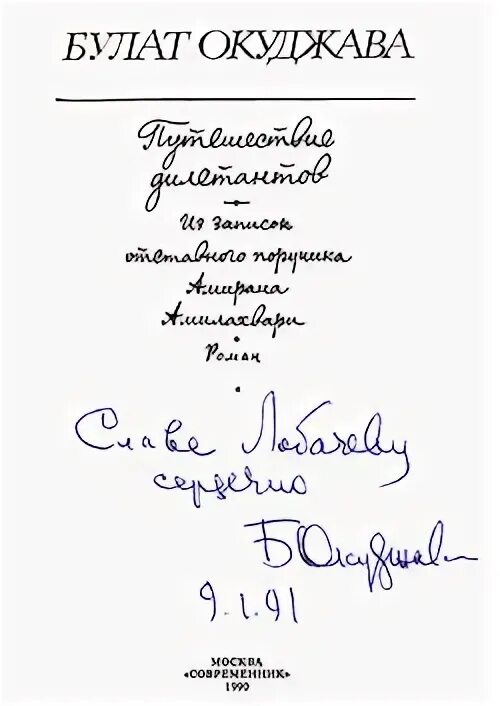 БУЛАТ ОКУДЖАВА
Путешествие
дилетантов
Из записок
отставного поручика
Амирана
Амилахвари
Роман
Славе Лобачеву
сердечно
Б Окуджава
9.1.91
МОСКВА
«СОВРЕМЕННИК»
1990